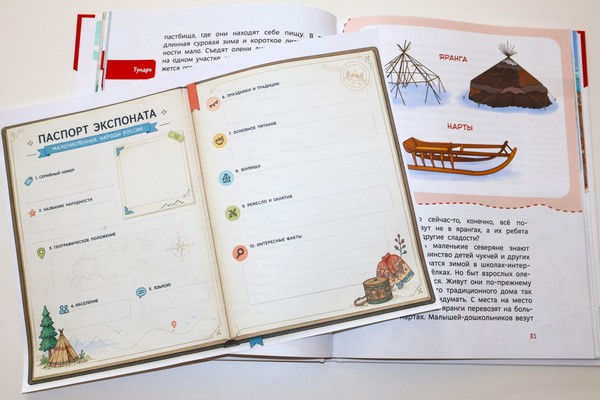 пастбища, где они находят себе пищу. В
длинная суровая зима и короткое
ности мало. Съедят олени
на одном участке
жется
Тундра
ЯРАНГА
НАРТЫ
ПАСПОРТ ЭКСПОНАТА
МАЛОЧИСЛЕННЫЕ НАРОДЫ РОССИИ
1. СЕРИЙНЫЙ НОМЕР
2. НАЗВАНИЕ НАРОДНОСТИ
3. ГЕОГРАФИЧЕСКОЕ ПОЛОЖЕНИЕ
4. НАСЕЛЕНИЕ
5. ЯЗЫК(И)
6. ПРАЗДНИКИ И ТРАДИЦИИ
7. ОСНОВНОЕ ПИТАНИЕ
8. ЖИЛИЩА
9. РЕМЕСЛО И ЗАНЯТИЯ
10. ИНТЕРЕСНЫЕ ФАКТЫ
сейчас-то, конечно, всё по-
вут не в ярангах, а их ребята
другие сладости?
маленькие северяне знают
детей чукчей и других
зимой в школах-интер-
ёлках. Но быт взрослых оле-
Живут они по-прежнему
традиционного дома так
думать. С места на место
яранги перевозят на боль-
нартах. Малышей-дошкольников везут
31